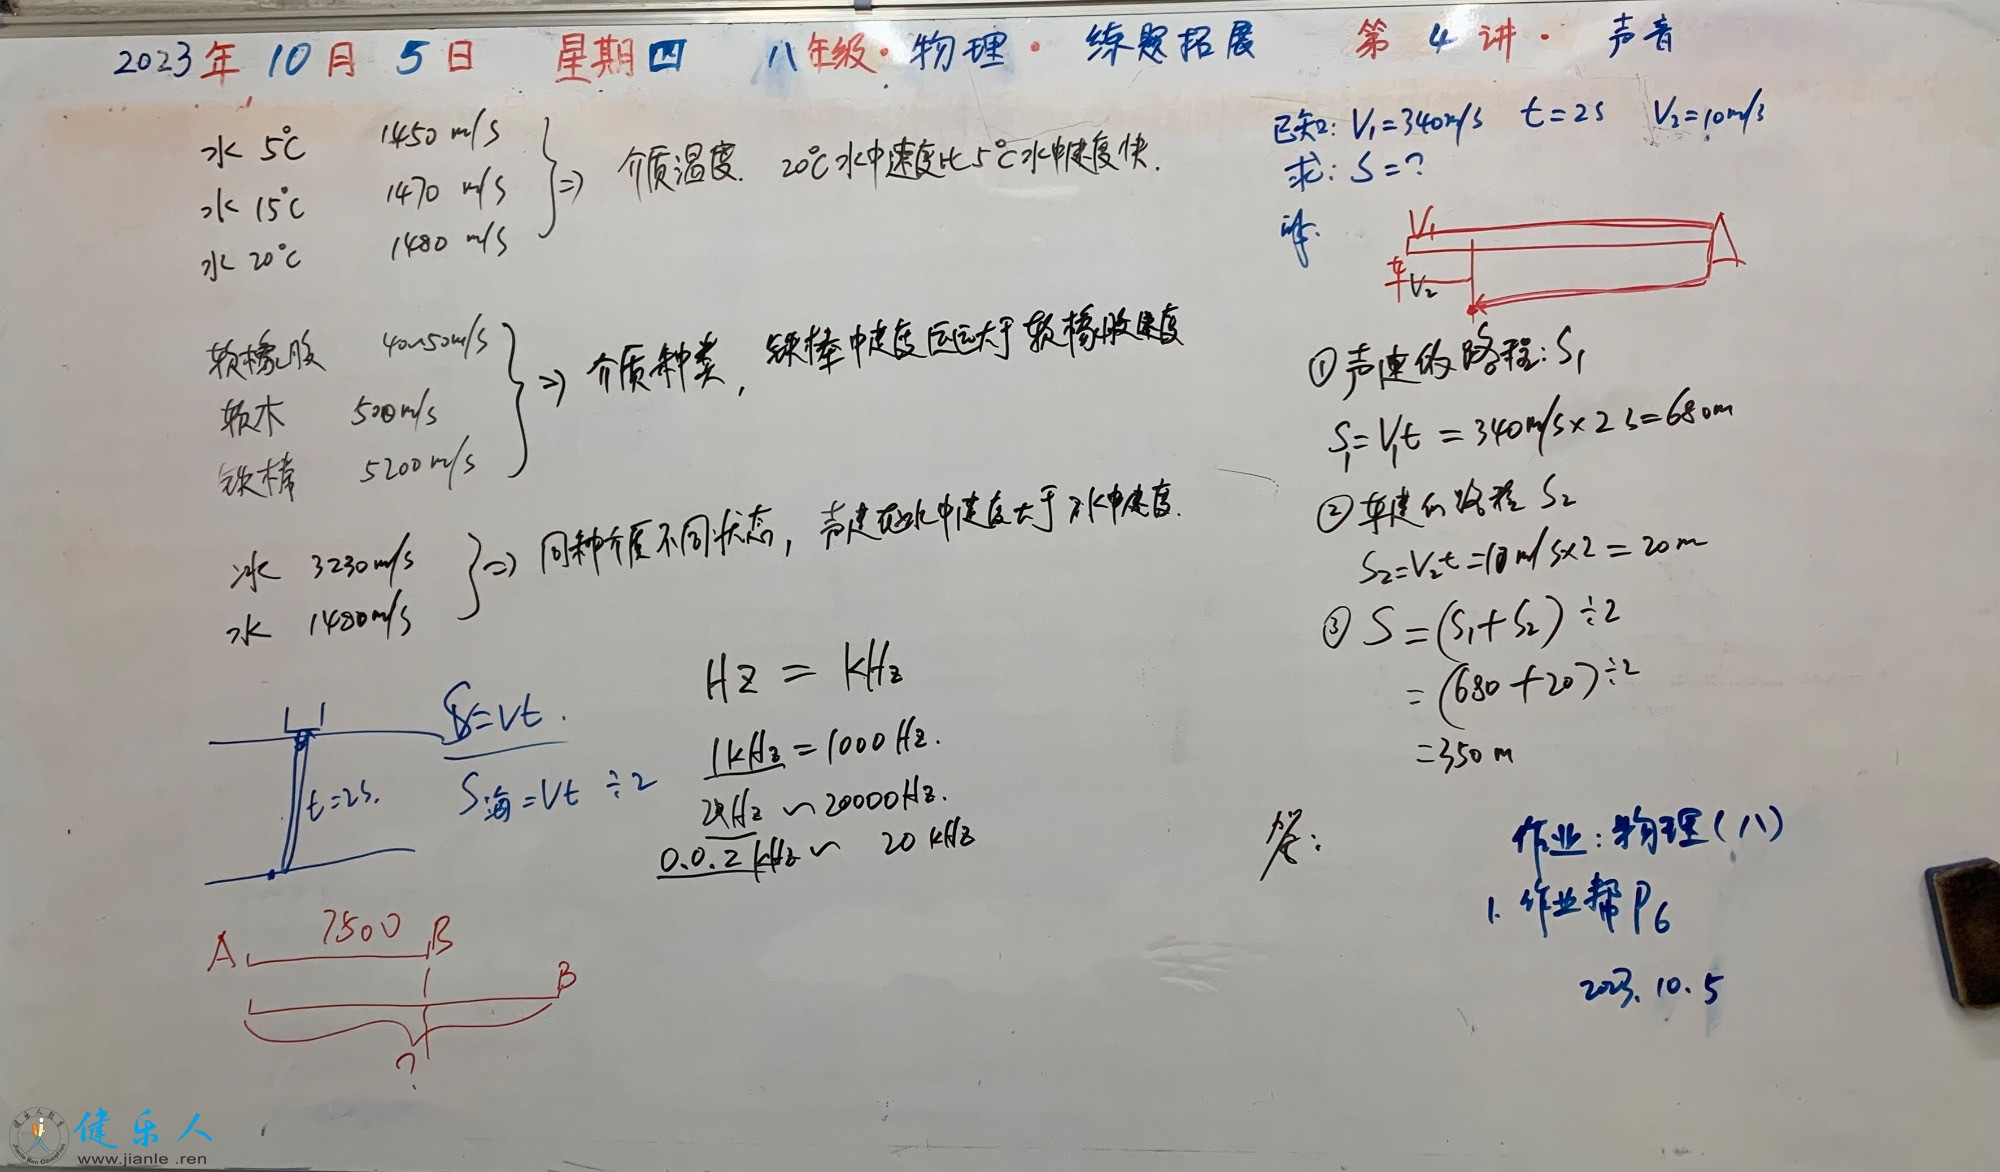 2023年 10月 5日 星期四 八年级·物理· 练题拓展 第4讲· 声音
水 5℃ 1450 m/s
水 15℃ 1470 m/s
水 20℃ 1480 m/s
⇒ 介质温度. 20℃水中速度比5℃水中速度快.
软橡胶 40~50m/s
软木 500m/s
铁棒 5200m/s
⇒ 介质种类, 铁棒中速度远远大于软橡胶速度
冰 3230m/s
水 1480m/s
⇒ 同种介质不同状态, 声速在冰中速度大于水中速度.
S=Vt.
S海=Vt ÷2
t=2s.
Hz = kHz
1kHz = 1000Hz.
~20000Hz.
0.0.2 kHz ~ 20 kHz
A 7500 B
B
?
已知: V₁=340m/s t=2s V₂=10m/s
求: S=?
解.
V₁
车 V₂
①声速的路程: S₁
S₁=V₁t = 340m/s×2s=680m
②车速的路程 S₂
S₂=V₂t=10m/s×2=20m
③ S=(S₁+S₂)÷2
=(680+20)÷2
=350m
答:
作业: 物理(八)
1. 作业帮P6
2023.10.5
健乐人
www.jianle.ren